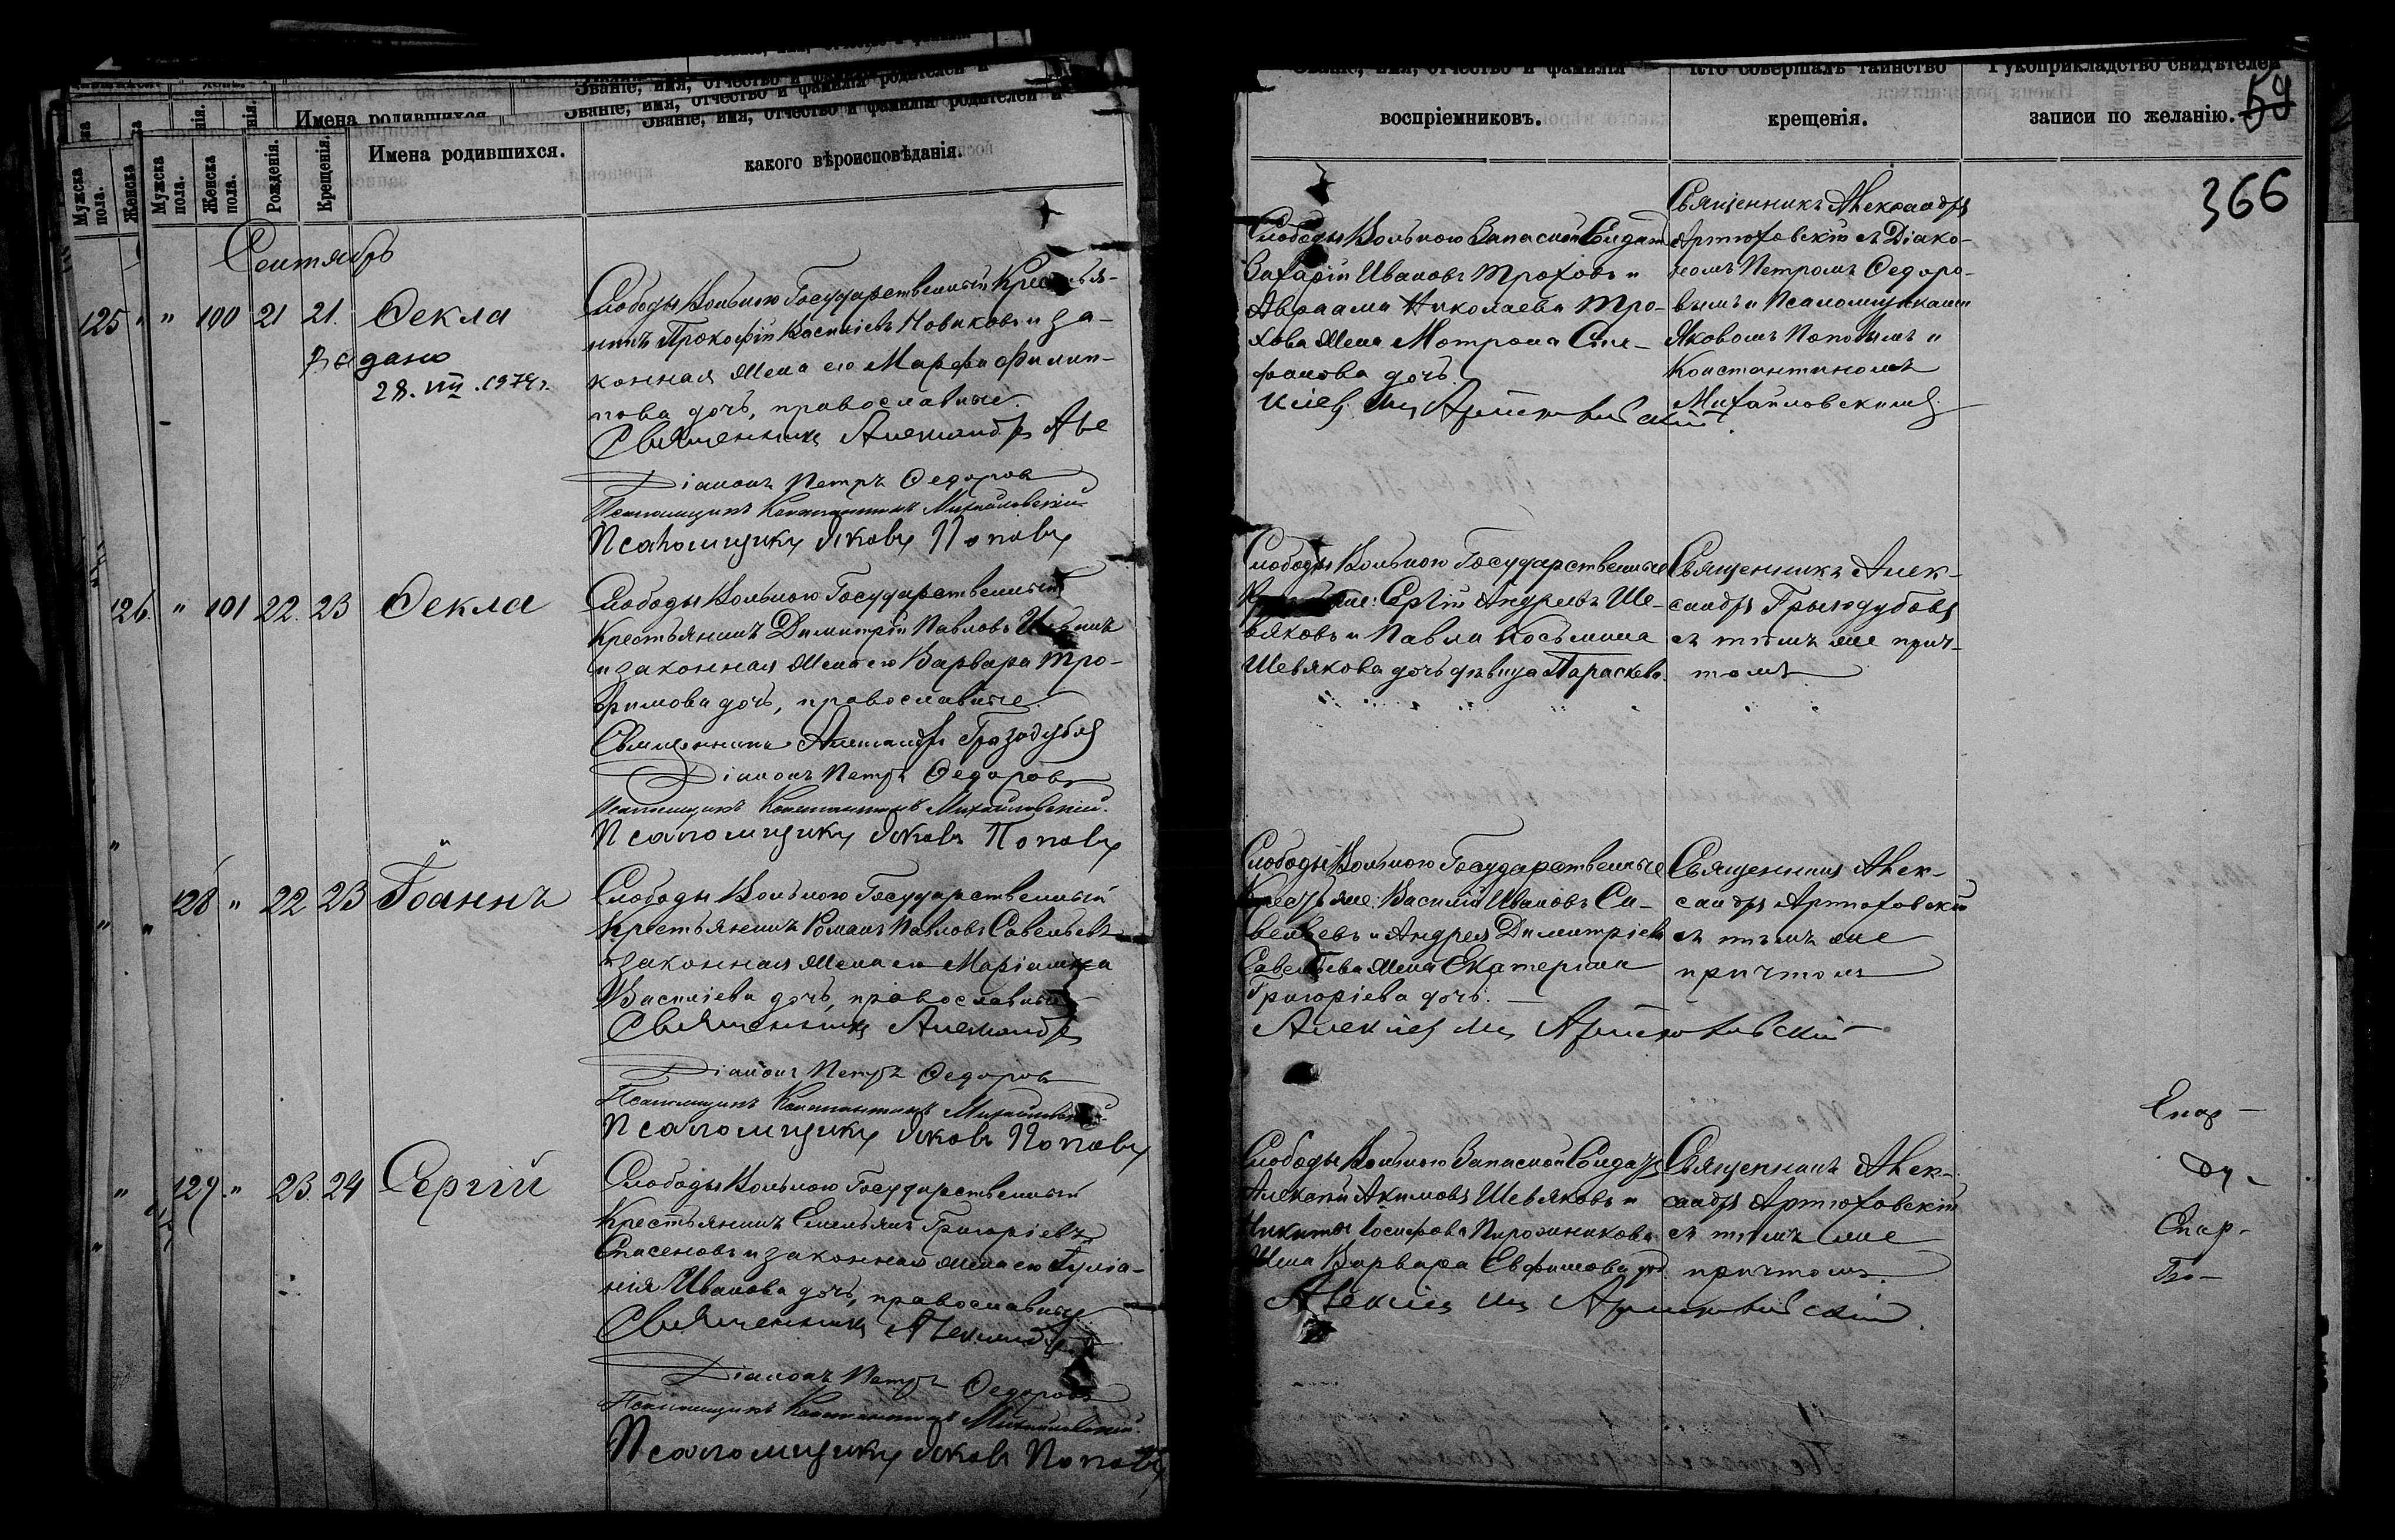 Званіе, имя, отчество и фамилія родителей и
Имена родившихся.
какого вѣроисповѣданія.
Мужска пола.
Женска пола.
Рожденія.
Крещенія.
Сентябрь
125 " " 100 21 21. Ѳекла
Видано
28. VIII. 1974г.
Слободы Вольной Государственный Крестья-
нинъ Прокофій Василіевъ Новиковъ и за-
конная жена его Марфа Филип-
пова дочь, православные.
Священникъ Александръ Але
Діаконъ Петръ Ѳедоровъ
Псаломщикъ Константинъ Михайловскій
Псаломщикъ Яковъ Поповъ
126. " 101 22. 23 Ѳекла
Слободы Вольной Государственный
Крестьянинъ Димитрій Павловъ
и законная жена его Варвара Тро-
фимова дочь, православные.
Священникъ Александръ Грызодубовъ
Діаконъ Петръ Ѳедоровъ
Псаломщикъ Константинъ Михайловскій.
Псаломщикъ Яковъ Поповъ
128 " 22 23 Іоаннъ
Слободы Вольной Государственный
Крестьянинъ Романъ Павловъ Савельевъ
и законная жена его Маріамна
Василіева дочь, православные
Священникъ Александръ
Діаконъ Петръ Ѳедоровъ
Псаломщикъ Константинъ Михайловскій
Псаломщикъ Яковъ Поповъ
129 " 23. 24 Сергій
Слободы Вольной Государственный
Крестьянинъ Емельянъ Григоріевъ
Стасеновъ и законная жена его Іуліа-
нія Иванова дочь, православные
Священникъ Александръ
Діаконъ Петръ Ѳедоровъ
Псаломщикъ Константинъ Михайловскій.
Псаломщикъ Яковъ Поповъ
Званіе, имя, отчество и фамилія
воспріемниковъ.
Кто совершалъ таинство
крещенія.
Рукоприкладство свидѣтелей
записи по желанію.
59
366
Слободы Вольной Запасной Солдатъ
Захарій Ивановъ Трофовъ и
Авраама Николаева Тро-
хова жена Матрона Сте-
фанова дочь.
Артюховскій
Священникъ Александръ
Артюховскій съ Діако-
номъ Петромъ Ѳедоро-
вымъ и Псаломщиками
Яковомъ Поповымъ и
Константиномъ
Михайловскимъ
Слободы Вольной Государственные
Крестьяне: Сергій Андреевъ Ше-
вяковъ и Павла Косьмина
Шевякова дочь дѣвица Параскева.
Священникъ Алек-
сандръ Грызодубовъ
съ тѣмъ же прич-
томъ
Слободы Вольной Государственные
Крестьяне: Василій Ивановъ Са-
вельевъ и Андрея Димитріева
Савельева жена Екатерина
Григоріева дочь.
Артюховскій
Священникъ Алек-
сандръ Артюховскій
съ тѣмъ же
причтомъ
Слободы Вольной Запасной Солдатъ
Алексѣй Акимовъ Шевяковъ и
Никиты Іосифова Пироженикова
жена Варвара Евфимова доч.
Артюховскій
Священникъ Алек-
сандръ Артюховскій
съ тѣмъ же
причтомъ.